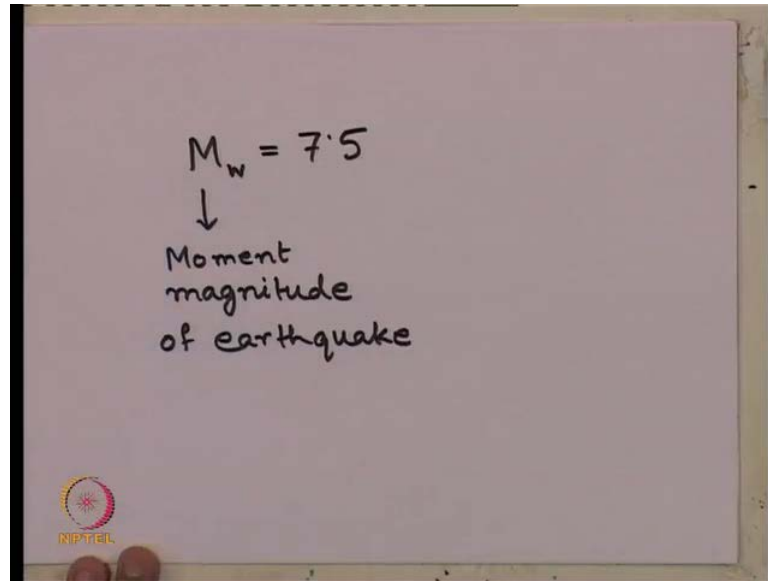 M_w = 7.5
↓
Moment
magnitude
of earthquake
NPTEL